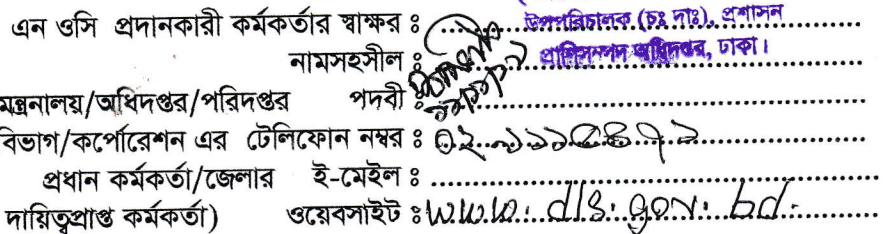 এন ওসি প্রদানকারী কর্মকর্তার স্বাক্ষর ঃ উপপরিচালক (চঃ দাঃ), প্রশাসন
নামসহসীল ঃ প্রাণিসম্পদ অধিদপ্তর, ঢাকা।
মন্ত্রনালয়/অধিদপ্তর/পরিদপ্তর পদবী ঃ
বিভাগ/কর্পোরেশন এর টেলিফোন নম্বর ঃ ০২
প্রধান কর্মকর্তা/জেলার ই-মেইল ঃ
দায়িত্বপ্রাপ্ত কর্মকর্তা) ওয়েবসাইট ঃ www.dls.gov.bd.